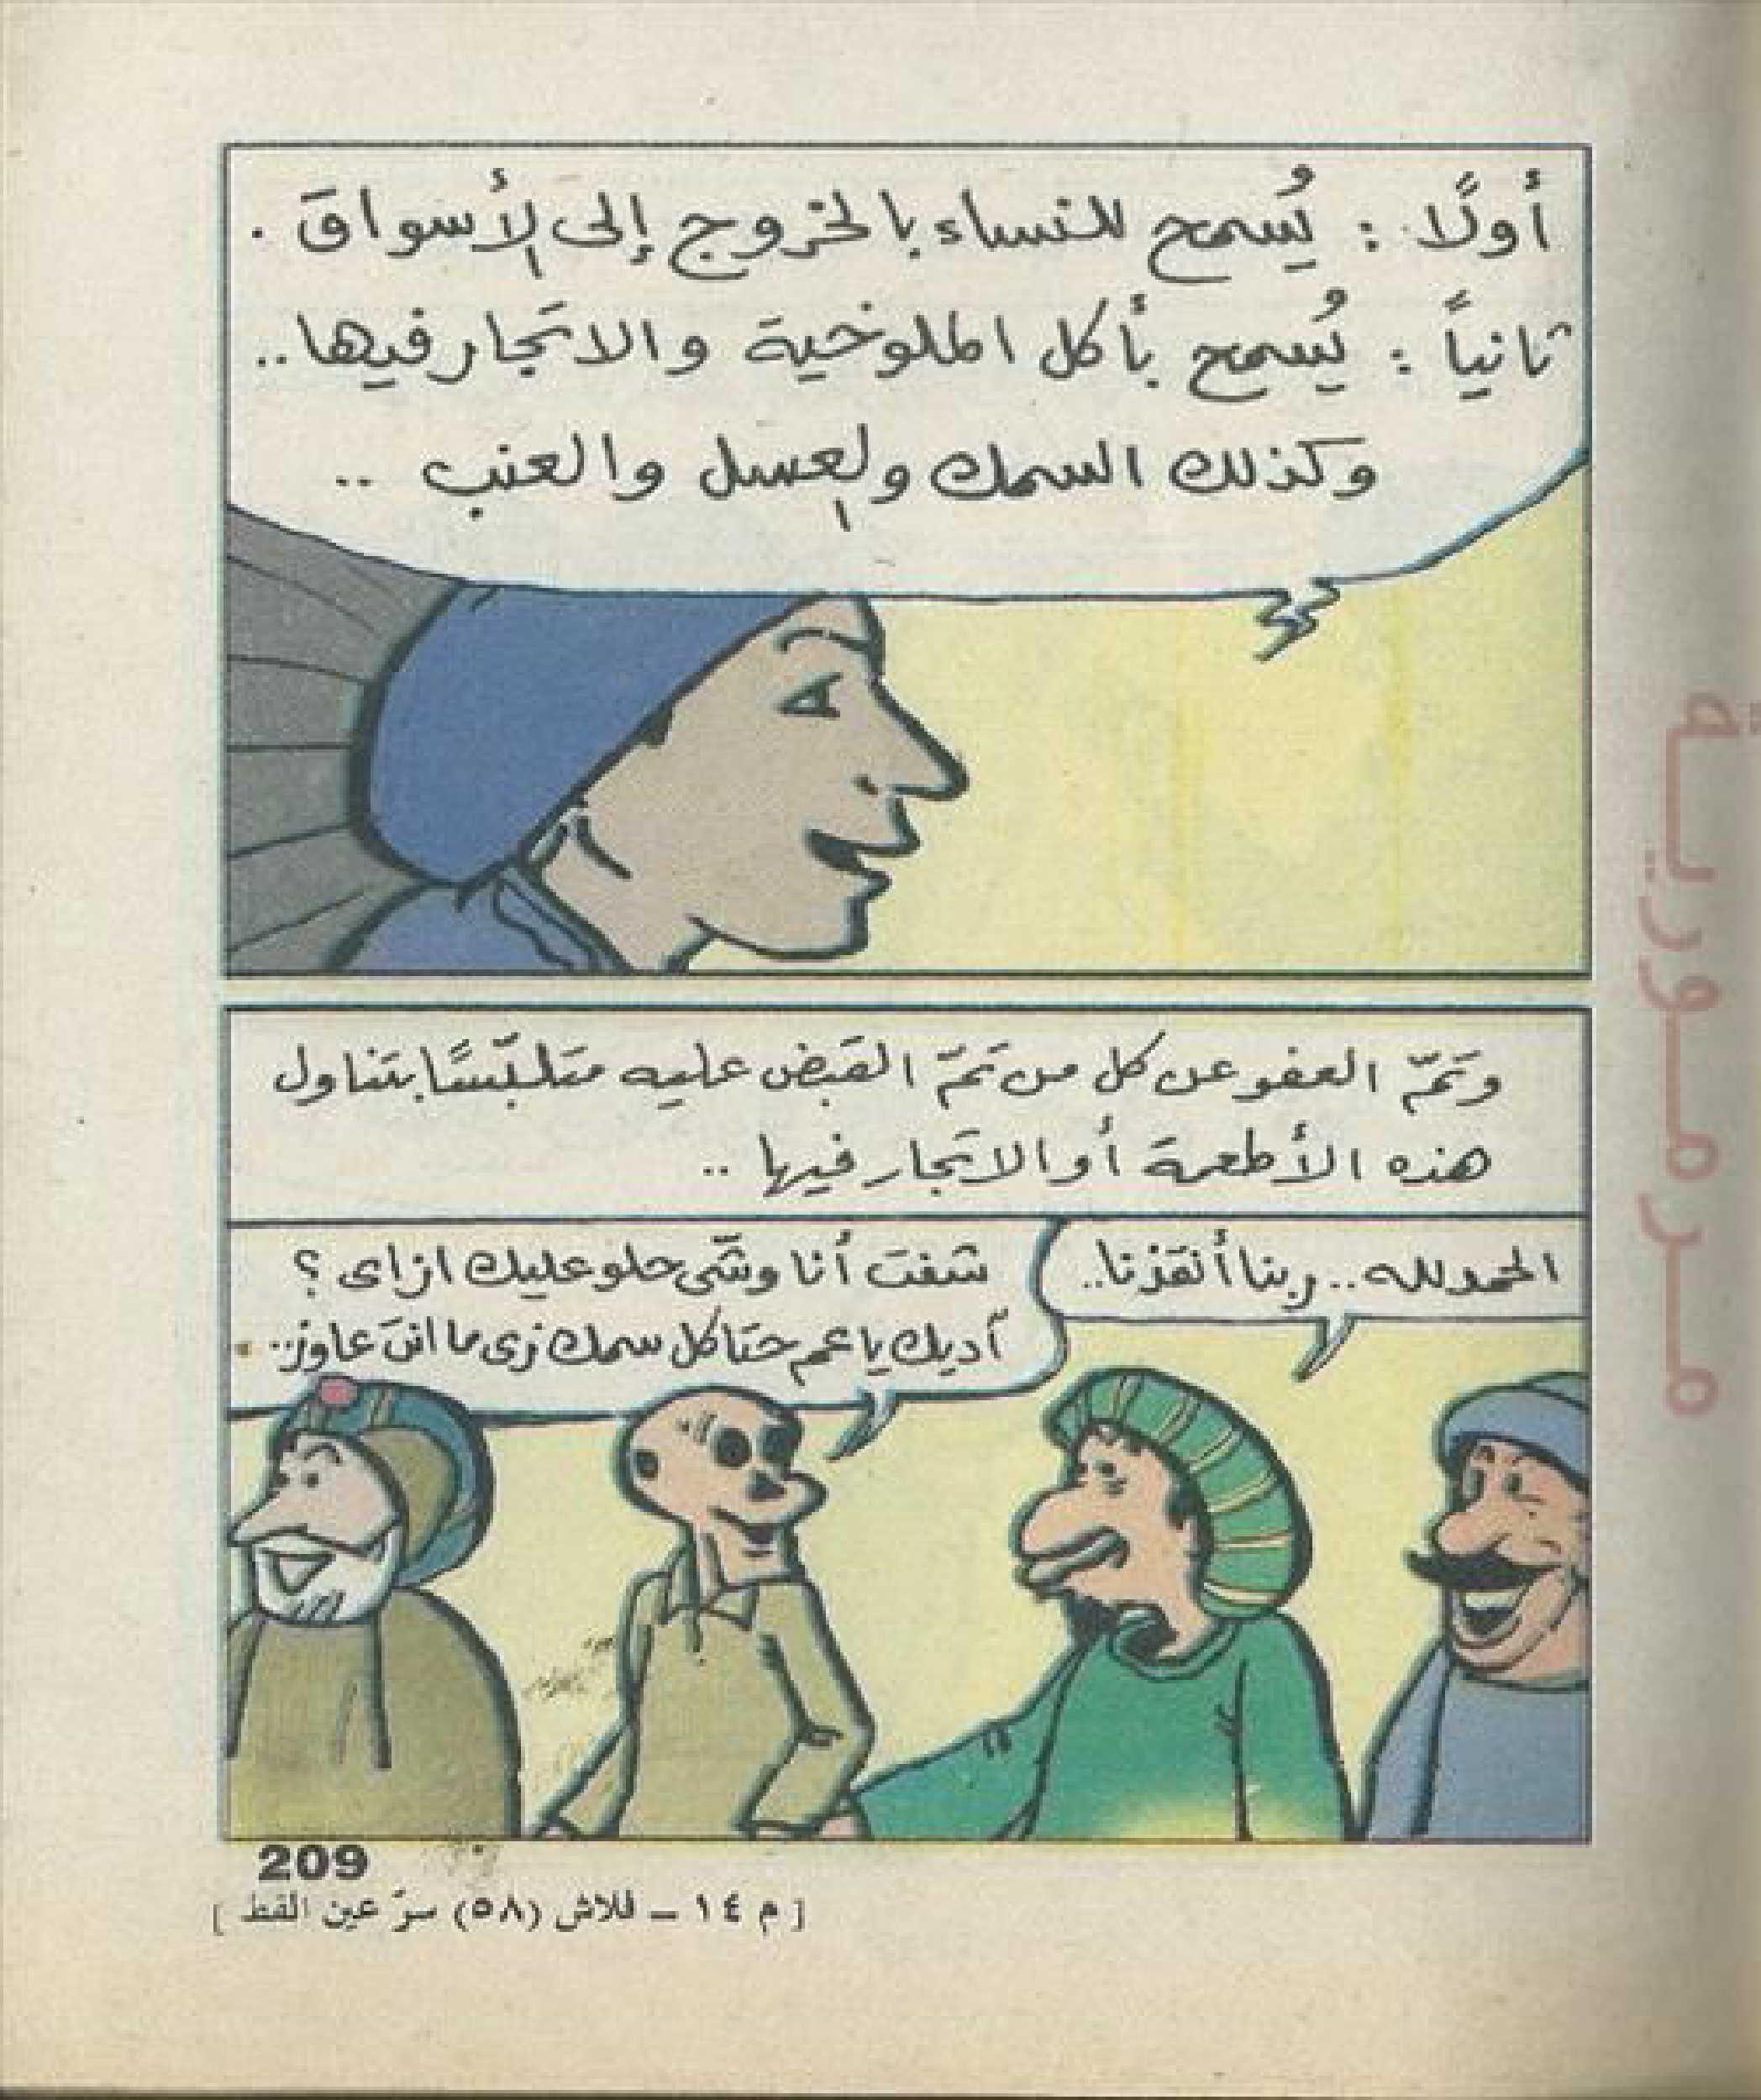 أولًا : يُسمح للنساء بالخروج إلى الأسواق .
ثانياً : يُسمح بأكل الملوخية والاتجار فيها ..
وكذلك السمك والعسل والعنب ..
وتمّ العفو عن كل من تمّ القبض عليه متلبّسًا بتناول
هذه الأطعمة أو الاتجار فيها ..
الحمد لله .. ربنا أنقذنا ..
شفت أنا وشّى حلو عليك ازاى ؟
آديك يا عم حتاكل سمك زى ما انت عاوز ..
209
[ م ١٤ – فلاش (٥٨) سرّ عين القط ]
مرمورية